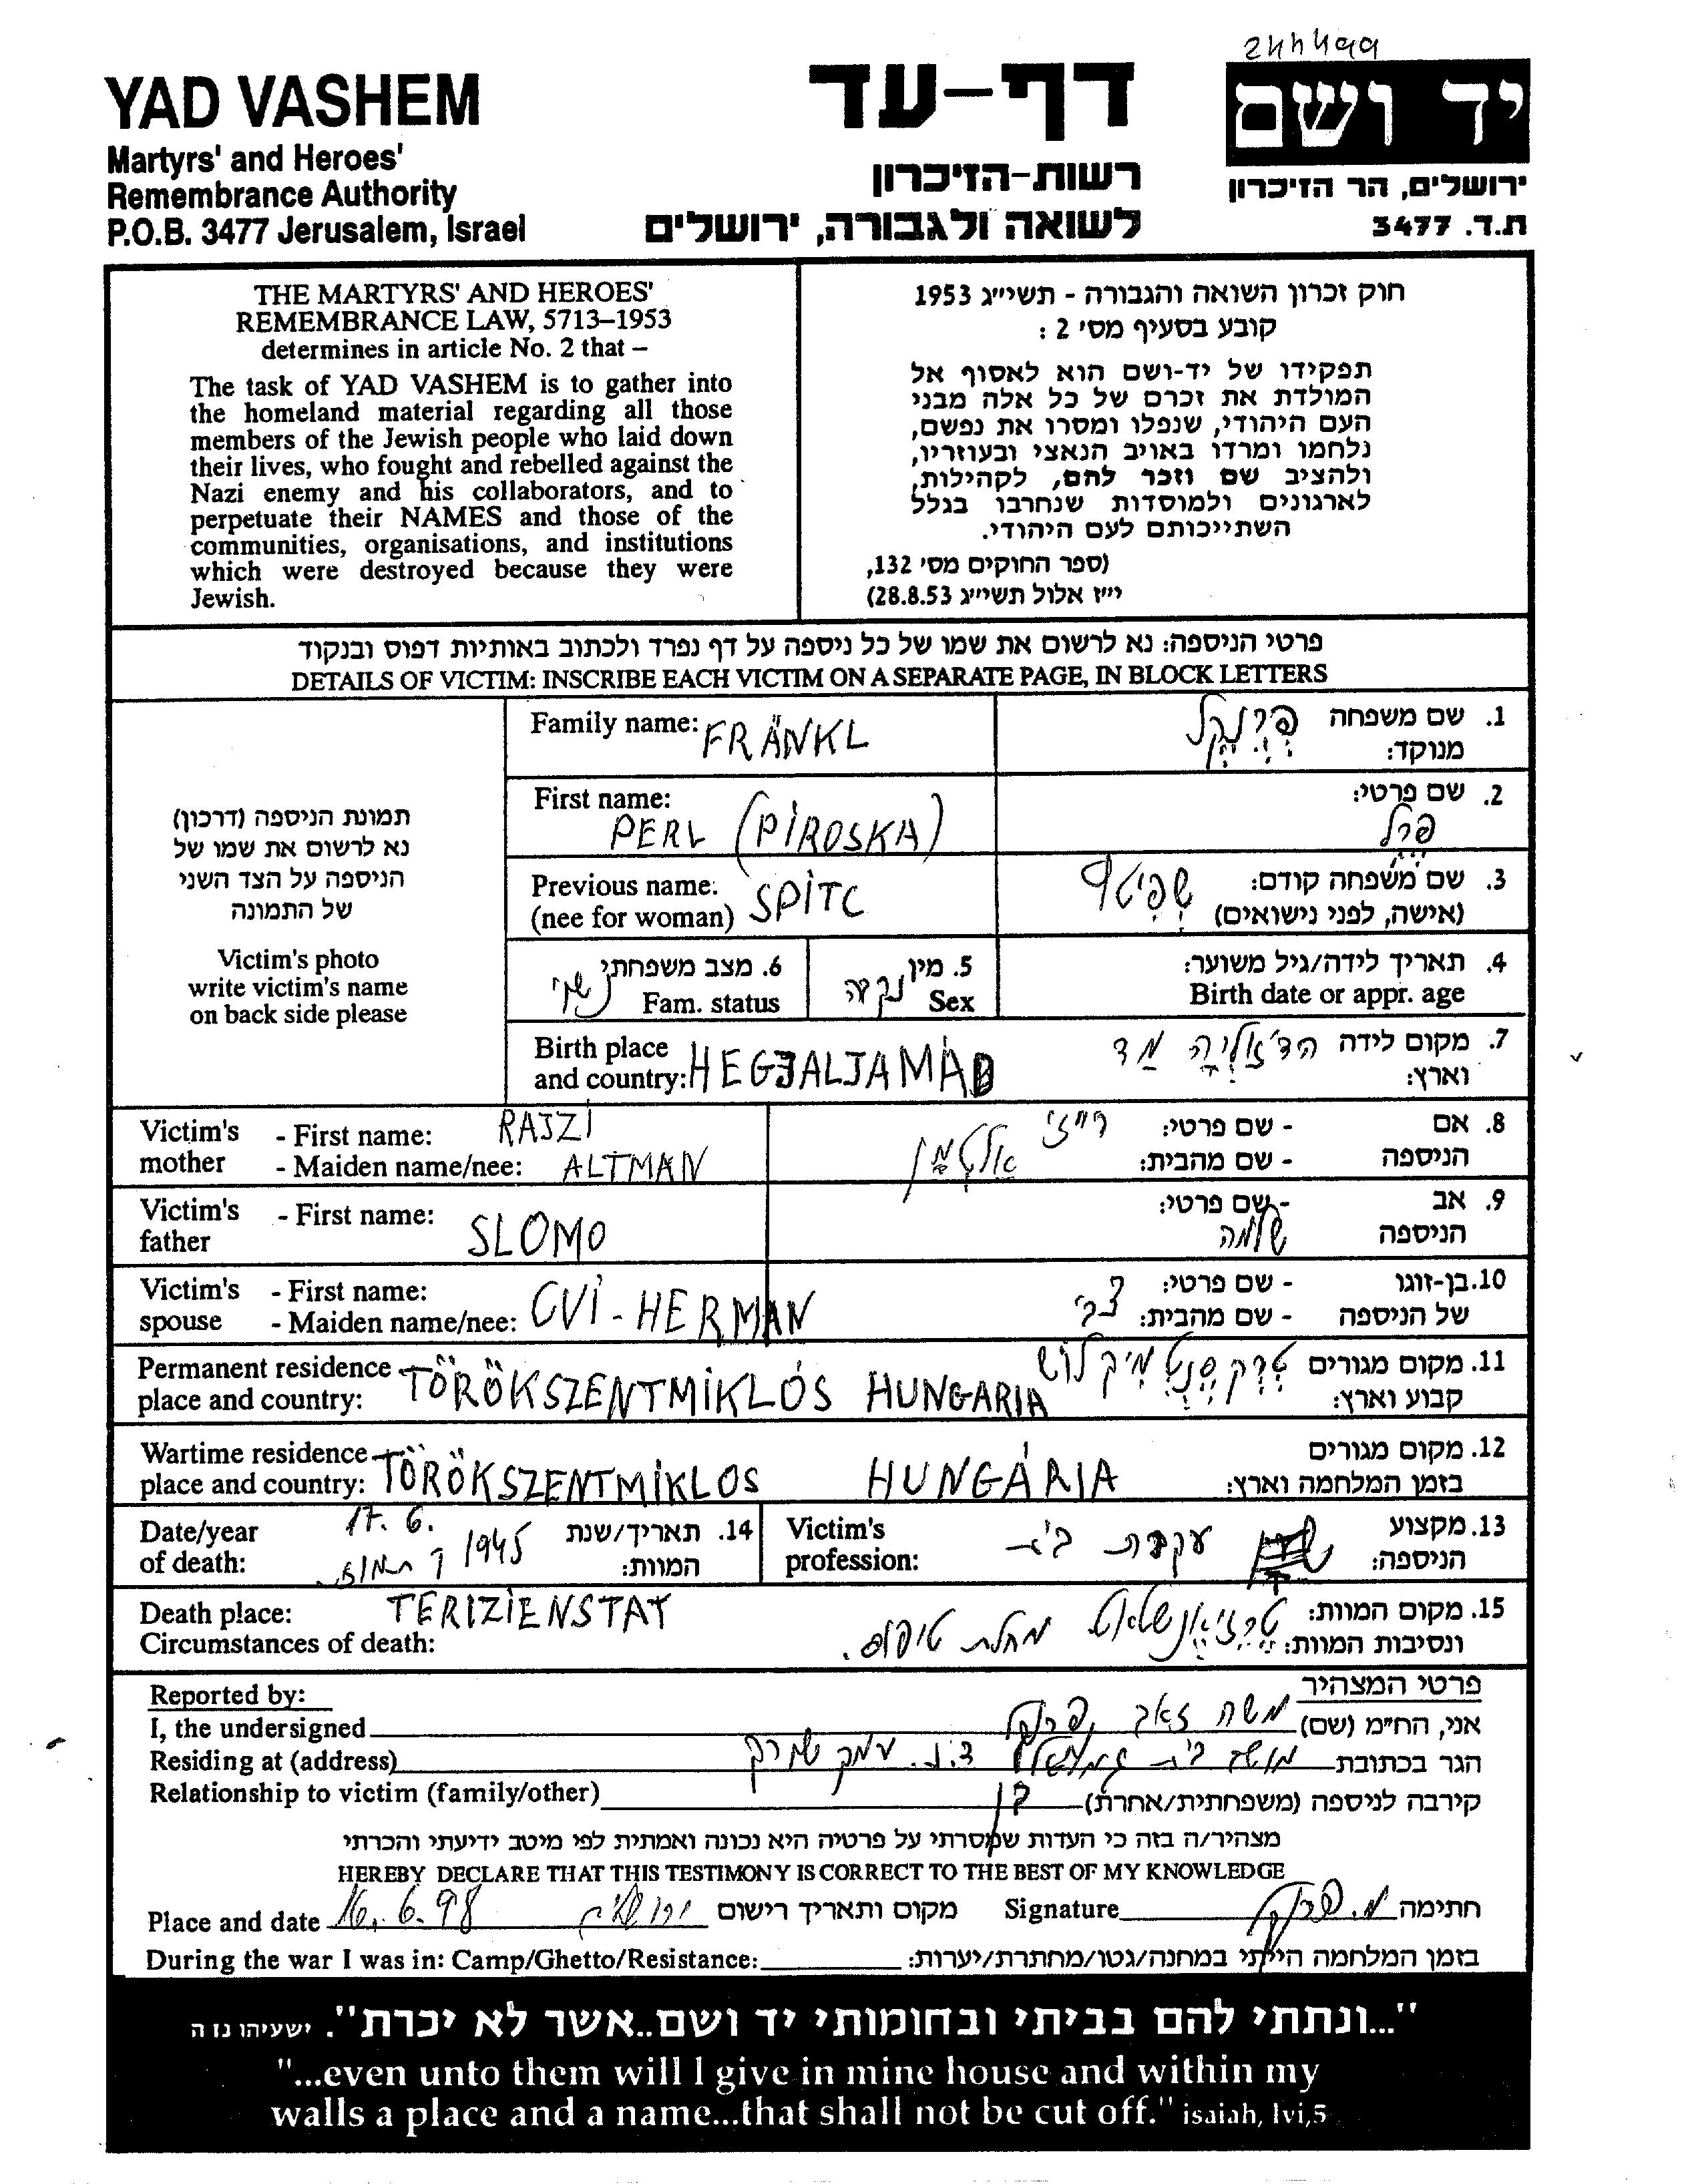 244499
YAD VASHEM
Martyrs' and Heroes'
Remembrance Authority
P.O.B. 3477 Jerusalem, Israel
דף-עד
רשות-הזיכרון
לשואה ולגבורה, ירושלים
יד ושם
ירושלים, הר הזיכרון
ת.ד. 3477
THE MARTYRS' AND HEROES'
REMEMBRANCE LAW, 5713–1953
determines in article No. 2 that –
The task of YAD VASHEM is to gather into
the homeland material regarding all those
members of the Jewish people who laid down
their lives, who fought and rebelled against the
Nazi enemy and his collaborators, and to
perpetuate their NAMES and those of the
communities, organisations, and institutions
which were destroyed because they were
Jewish.
חוק זכרון השואה והגבורה - תשי״ג 1953
קובע בסעיף מס' 2 :
תפקידו של יד-ושם הוא לאסוף אל
המולדת את זכרם של כל אלה מבני
העם היהודי, שנפלו ומסרו את נפשם,
נלחמו ומרדו באויב הנאצי ובעוזריו,
ולהציב שם וזכר להם, לקהילות,
לארגונים ולמוסדות שנחרבו בגלל
השתייכותם לעם היהודי.
(ספר החוקים מס' 132,
י״ז אלול תשי״ג 28.8.53)
פרטי הניספה: נא לרשום את שמו של כל ניספה על דף נפרד ולכתוב באותיות דפוס ובנקוד
DETAILS OF VICTIM: INSCRIBE EACH VICTIM ON A SEPARATE PAGE, IN BLOCK LETTERS
תמונת הניספה (דרכון)
נא לרשום את שמו של
הניספה על הצד השני
של התמונה
Victim's photo
write victim's name
on back side please
Family name: FRÄNKL
1. שם משפחה פרנקל
מנוקד:
First name:
PERL (PIROSKA)
2. שם פרטי:
פרל
Previous name:
(nee for woman) SPITC
3. שם משפחה קודם: שפיטץ
(אישה, לפני נישואים)
6. מצב משפחתי נשוי
Fam. status
5. מין נקבה
Sex
4. תאריך לידה/גיל משוער:
Birth date or appr. age
Birth place
and country: HEGJALJAMÁD
7. מקום לידה הדיאליה מד
וארץ:
Victim's - First name: RAJZI
mother - Maiden name/nee: ALTMAN
8. אם - שם פרטי: רייזי
הניספה - שם מהבית: אלטמן
Victim's - First name: SLOMO
father
9. אב - שם פרטי:
הניספה שלמה
Victim's - First name:
spouse - Maiden name/nee: CVI - HERMAN
10. בן-זוגו - שם פרטי:
של הניספה - שם מהבית: צבי
Permanent residence
place and country: TÖRÖKSZENTMIKLÓS HUNGARIA
11. מקום מגורים טרקסנטמיקלוש
קבוע וארץ:
Wartime residence
place and country: TÖRÖKSZENTMIKLOS HUNGÁRIA
12. מקום מגורים
בזמן המלחמה וארץ:
Date/year 17. 6.
of death: 1945 ו' תמוז
14. תאריך/שנת
המוות:
Victim's
profession: עקרת בית
13. מקצוע
הניספה:
Death place: TERIZIENSTAT
Circumstances of death:
15. מקום המוות: טרזיאנשטאט מחלת טיפוס.
ונסיבות המוות:
Reported by:
פרטי המצהיר
I, the undersigned
אני, הח״מ (שם) משה זאב פרנקל
Residing at (address)
הגר בכתובת מושב בית גמליאל ד.נ. עמק שורק
Relationship to victim (family/other)
קירבה לניספה (משפחתית/אחרת) בן
מצהיר/ה בזה כי העדות שמסרתי על פרטיה היא נכונה ואמתית לפי מיטב ידיעתי והכרתי
HEREBY DECLARE THAT THIS TESTIMONY IS CORRECT TO THE BEST OF MY KNOWLEDGE
Place and date 16.6.98 ירושלים מקום ותאריך רישום
Signature מ. פרנקל חתימה
During the war I was in: Camp/Ghetto/Resistance:
בזמן המלחמה הייתי במחנה/גטו/מחתרת/יערות:
"...ונתתי להם בביתי ובחומותי יד ושם..אשר לא יכרת". ישעיהו נז ה
"...even unto them will I give in mine house and within my
walls a place and a name...that shall not be cut off." isaiah, lvi,5